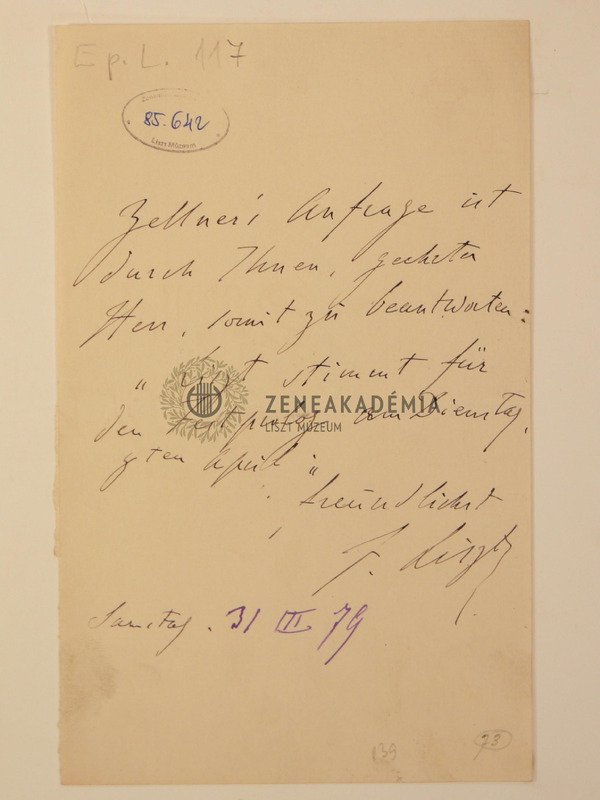 Ep. L. 117
85.642
Liszt Múzeum
Zellner's Anfrage ist
durch Ihnen, geehrter
Herr, somit zu beantworten:
"Liszt stimmt für
ZENEAKADÉMIA
LISZT MÚZEUM
den Festprolog am Dienstag,
ten April"
freundlichst
F. Liszt
Samstag. 31 III 79
139
73